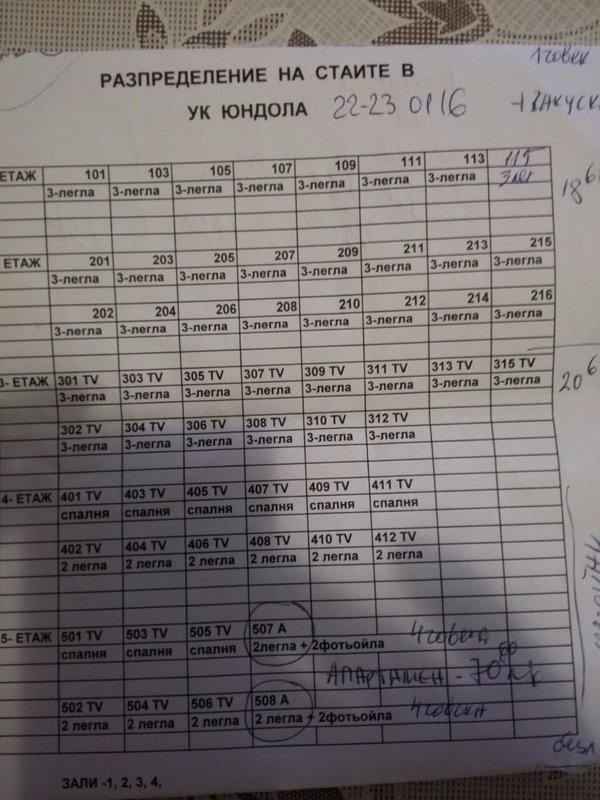 1човек
РАЗПРЕДЕЛЕНИЕ НА СТАИТЕ В
УК ЮНДОЛА 22-23 01 16 + ЗАКУСК
ЕТАЖ 101 103 105 107 109 111 113 115
3-легла 3-легла 3-легла 3-легла 3-легла 3-легла 3-легла 3лег
18 6
ЕТАЖ 201 203 205 207 209 211 213 215
3-легла 3-легла 3-легла 3-легла 3-легла 3-легла 3-легла 3-легла
202 204 206 208 210 212 214 216
3-легла 3-легла 3-легла 3-легла 3-легла 3-легла 3-легла 3-легла
3- ЕТАЖ 301 TV 303 TV 305 TV 307 TV 309 TV 311 TV 313 TV 315 TV
3-легла 3-легла 3-легла 3-легла 3-легла 3-легла 3-легла 3-легла
20 6
302 TV 304 TV 306 TV 308 TV 310 TV 312 TV
3-легла 3-легла 3-легла 3-легла 3-легла 3-легла
4- ЕТАЖ 401 TV 403 TV 405 TV 407 TV 409 TV 411 TV
спалня спалня спалня спалня спалня спалня
402 TV 404 TV 406 TV 408 TV 410 TV 412 TV
2 легла 2 легла 2 легла 2 легла 2 легла 2 легла
5- ЕТАЖ 501 TV 503 TV 505 TV 507 А
спалня спалня спалня 2легла + 2фотьойла 4човека
АПАРТАМЕН - 70
502 TV 504 TV 506 TV 508 А
2 легла 2 легла 2 легла 2 легла + 2фотьойла 4човека
ЗАЛИ -1, 2, 3, 4,